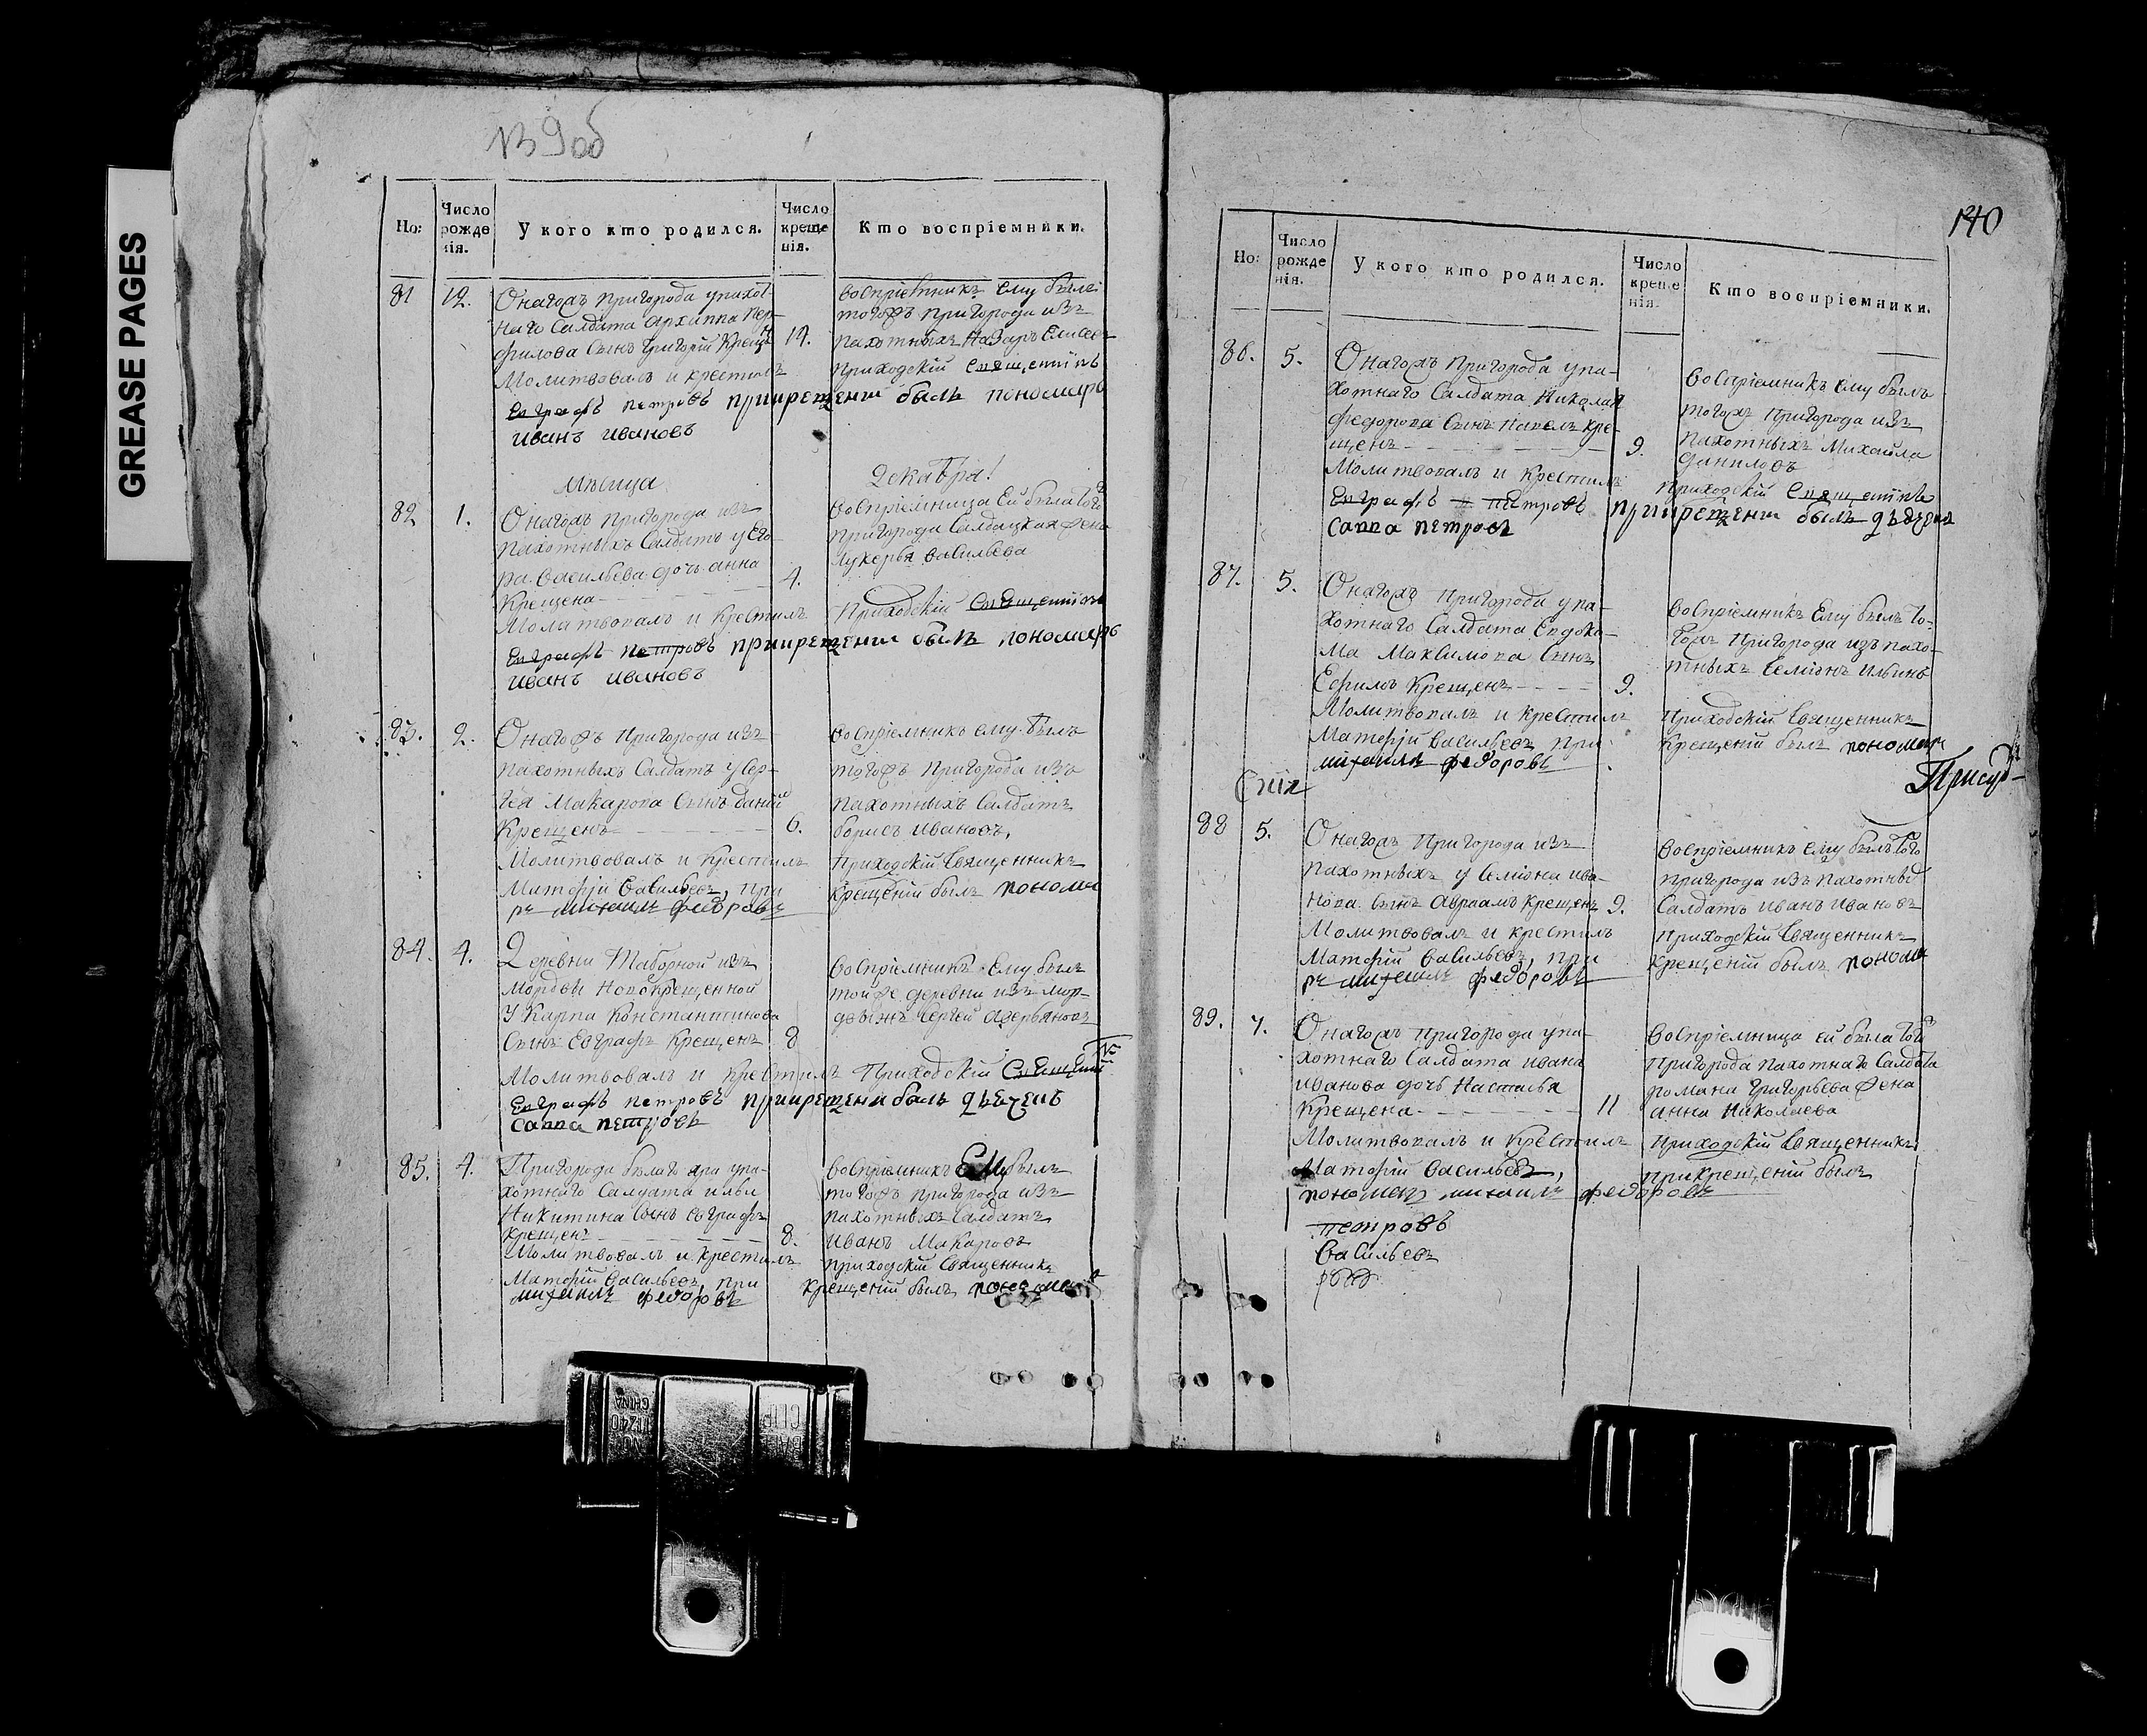 GREASE PAGES
139об
Но:
Число рожденія.
У кого кто родился.
Число крещенія.
Кто воспріемники.
81
12.
Онагожъ Пригорода упахот-
наго Салдата Архиппа Пер-
филова Сынъ Григорій Крещнъ
Молитвовалъ и крестилъ
Воспріемникъ ему былъ
тогожъ пригорода изъ
пахотныхъ Назаръ Елисеев
Приходскій Священникъ
Евграфъ Петровъ прикрещеніи былъ пономарь
Иванъ Ивановъ
мѣсяца
Декабря!
82
1.
Онагожъ Пригорода изъ
пахотныхъ Салдатъ у Его-
ра Васильева дочь Анна
Крещена
4.
Молитвовалъ и Крестилъ
Воспріемница Ей была того
пригорода Салдацкая жена
Лукерья Васильева
Приходскій Священникъ
Евграфъ Петровъ прикрещеніи былъ пономарь
Иванъ Ивановъ
83.
2.
Онагожъ Пригорода изъ
пахотныхъ Салдатъ у Сер-
гея Макарова Сынъ Данiил
Крещенъ
6.
Молитвовалъ и Крестилъ
Матфій Васильевъ, При
Воспріемникъ ему былъ
тогожъ Пригорода изъ
пахотныхъ Салдатъ
Борисъ Ивановъ,
Приходскій Священникъ
Крещеніи былъ понома
рь михаилъ федоровъ
84.
4.
Деревни Таборной изъ
Мордвы Новокрещенной
У Карпа Константинова
Сынъ Евграфъ Крещенъ
8
Воспріемникъ Ему былъ
тойже деревни изъ мор-
двинъ Сергей Аверьяновъ
Молитвовалъ и крестилъ Приходскій Священникъ
Евграфъ Петровъ прикрещеніи былъ
Савва Петровъ
85.
4.
Пригорода бѣлаго яра упа-
хотнаго Салдата Ильи
Никитина Сынъ Евграфъ
Крещенъ
8.
Молитвовалъ и Крестилъ
Матфій Васильевъ, При
михаилъ федоровъ
Воспріемникъ Ему былъ
тогожъ пригорода изъ
пахотныхъ Салдатъ
Иванъ Макаровъ
приходскій Священникъ
крещеніи былъ пономарь
140
Но:
Число рожденія.
У кого кто родился.
Число крещенія.
Кто воспріемники.
86.
5.
Онагожъ Пригорода упа-
хотнаго Салдата Николая
Федорова Сынъ Павелъ Кре-
щенъ
9.
Молитвовалъ и Крестилъ
Воспріемникъ Ему былъ
тогожъ Пригорода изъ
пахотныхъ Михайла
Даниловъ
Приходскій Священникъ
Евграфъ Петровъ прикрещеніи былъ
Савва Петровъ
87.
5.
Онагожъ Пригорода упа-
хотнаго Салдата Евдоки-
ма Максимова Сынъ
Ефимъ Крещенъ
9.
Молитвовалъ и Крестилъ
Матфій Васильевъ, При
михаилъ федоровъ
Воспріемникъ Ему былъ то-
гожъ Пригорода изъ пахо-
тныхъ Семіонъ Ильинъ
Приходскій Священникъ
Крещеніи былъ пономарь
Присуд-
88
5.
Онагожъ Пригорода изъ
пахотныхъ у Семіона Ива-
нова Сынъ Авраамъ Крещенъ
9.
Молитвовалъ и крестилъ
Матфій Васильевъ, При
рь михаилъ федоровъ
Воспріемникъ ему былъ того
пригорода изъ пахотныхъ
Салдатъ Иванъ Ивановъ
Приходскій Священникъ
Крещеніи былъ понома
89.
7.
Онагожъ Пригорода упа-
хотнаго Салдата Ивана
Иванова дочь Настасья
Крещена
11
Молитвовалъ и Крестилъ
Матфій Васильевъ,
Воспріемница ей была того
Пригорода пахотнаго Салдата
Романа Григорьева жена
Анна Николаева
Приходскій Священникъ
прикрещеніи былъ
пономарь михаилъ федоровъ
Петровъ
Васильевъ